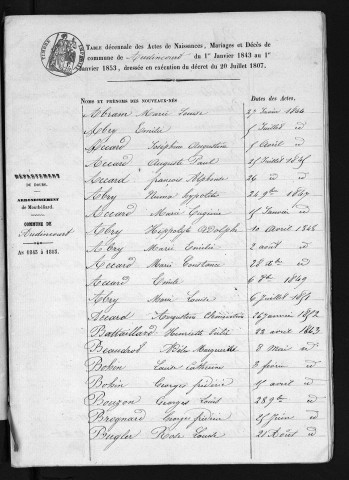 TABLE décennale des Actes de Naissances, Mariages et Décès de
commune de Audincourt du 1er Janvier 1843 au 1er
Janvier 1853, dressée en exécution du décret du 20 Juillet 1807.
DÉPARTEMENT
DU DOUBS.
ARRONDISSEMENT
de Montbéliard.
COMMUNE DE
Audincourt
AN 1843 à 1853.
NOMS ET PRÉNOMS DES NOUVEAUX-NÉS Dates des Actes.
Abram Marie Louise 27 Janvier 1844
Abry Emilie 5 Juillet id
Accard Joséphine Augustine 1 Avril id
Accard Auguste Paul 25 Juillet 1845
Accard françois Alphonse 26 id id
Abry Numa hypolite 24 9bre 1847
Accard Marie Eugénie 15 Janvier id
Abry Hippolyte Adolphe 10 Avril 1848
Abry Marie Emilie 2 août id
Accard Marie Constance 28 Xbre id
Accard Emile 6 1849
Abry Marie Louise 6 Juillet 1851
Accard Augustine Clémentine 26 Janvier 1852
Battaillard Henriette 22 avril 1843
Beaudrot Adèle Marguerite 8 Mai id
Bohin Louise Catherine 3 février id
Bohin Georges fréderic 15 avril id
Bouzon Georges Louis 28 9bre id
Brognard Georges fréderic 25 Juin id
Bugler Rose Louise 21 Août id